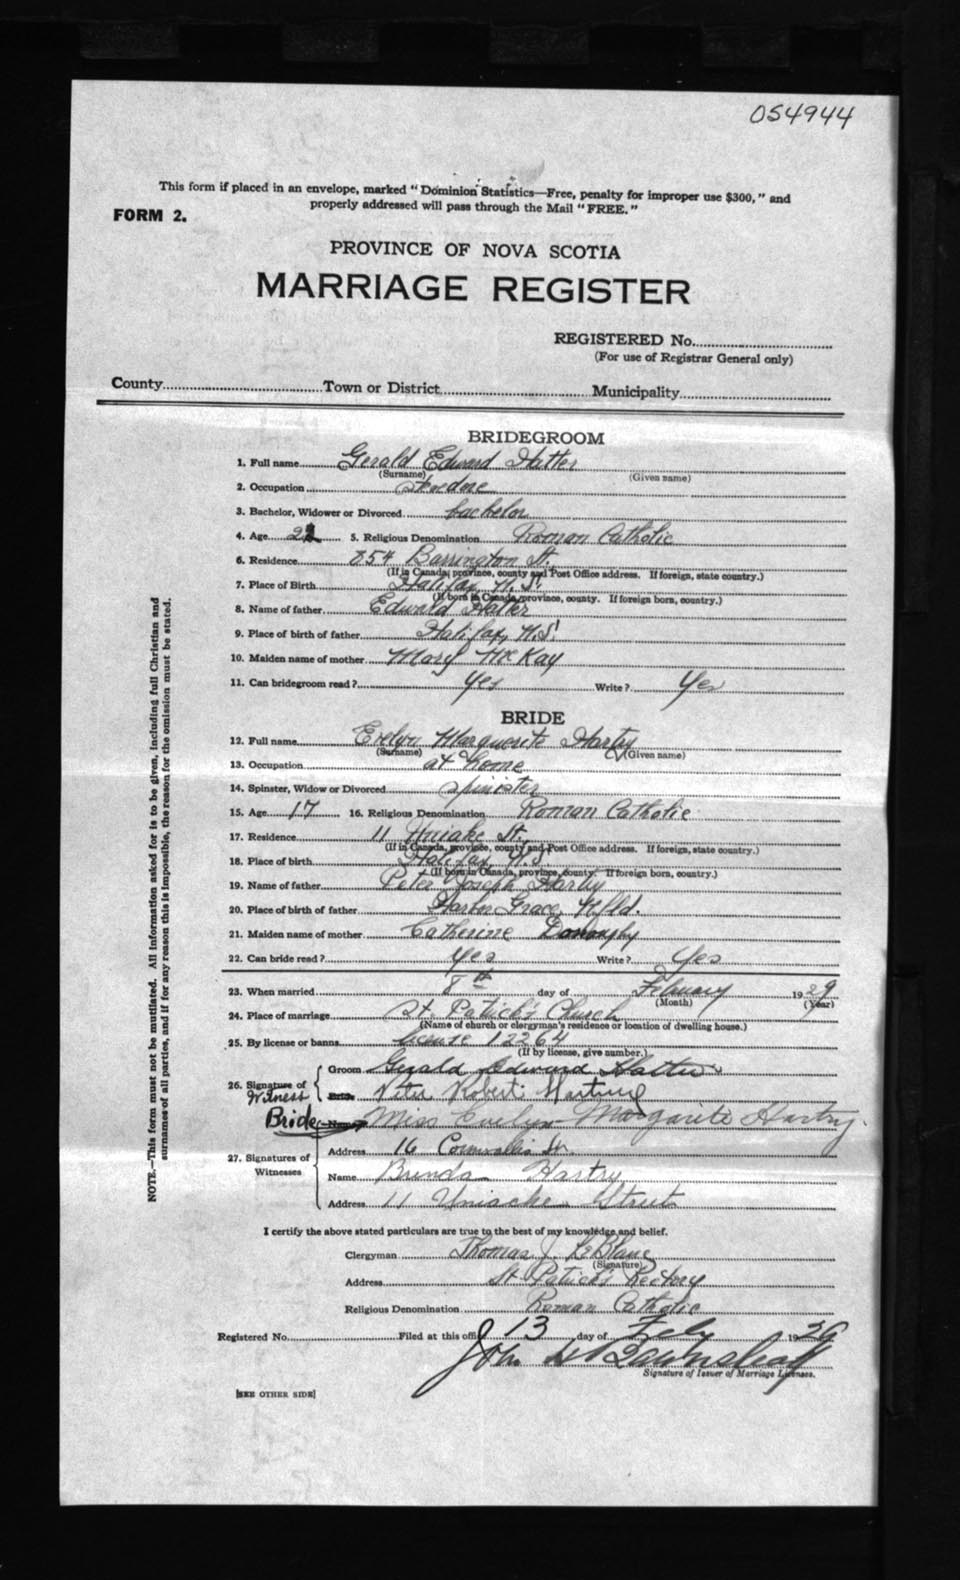 054944
This form if placed in an envelope, marked "Dominion Statistics—Free, penalty for improper use $300," and
properly addressed will pass through the Mail "FREE."
FORM 2.
PROVINCE OF NOVA SCOTIA
MARRIAGE REGISTER
REGISTERED No.
(For use of Registrar General only)
County Town or District Municipality
NOTE.—This form must not be mutilated. All information asked for is to be given, including full Christian and
surnames of all parties, and if for any reason this is impossible, the reason for the omission must be stated.
BRIDEGROOM
1. Full name Gerald Edward Hatter
(Surname) (Given name)
2. Occupation Stevedore
3. Bachelor, Widower or Divorced bachelor
4. Age 22 5. Religious Denomination Roman Catholic
6. Residence 854 Barrington St.
(If in Canada, province, county and Post Office address. If foreign, state country.)
7. Place of Birth Halifax, N.S.
(If born in Canada, province, county. If foreign born, country.)
8. Name of father Edward Hatter
9. Place of birth of father Halifax, N.S.
10. Maiden name of mother Mary McKay
11. Can bridegroom read? Yes Write? Yes
BRIDE
12. Full name Evelyn Marguerite Hartry
(Surname) (Given name)
13. Occupation at home
14. Spinster, Widow or Divorced spinster
15. Age 17 16. Religious Denomination Roman Catholic
17. Residence 11 Uniake St.
(If in Canada, province, county and Post Office address. If foreign, state country.)
18. Place of birth Halifax, N.S.
(If born in Canada, province, county. If foreign born, country.)
19. Name of father Peter Joseph Hartry
20. Place of birth of father Harbor Grace, Nfld.
21. Maiden name of mother Catherine
22. Can bride read? Yes Write? Yes
23. When married 8th day of February 1929
(Month) (Year)
24. Place of marriage St. Patrick's Church
(Name of church or clergyman's residence or location of dwelling house.)
25. By license or banns license 12264
(If by license, give number.)
Groom Gerald Edward Hatter
26. Signature of Witness Robert
Bride Miss Evelyn Margarite Hartry.
Address 16 Cornwallis St.
27. Signatures of Witnesses
Name Brenda Hartry
Address 11 Uniacke Street
I certify the above stated particulars are true to the best of my knowledge and belief.
Clergyman Thomas J. LeBlanc
(Signature)
Address St. Patrick's Rectory
Religious Denomination Roman Catholic
Registered No. Filed at this office 13 day of Feby 1929
John
Signature of Issuer of Marriage Licenses.
[SEE OTHER SIDE]